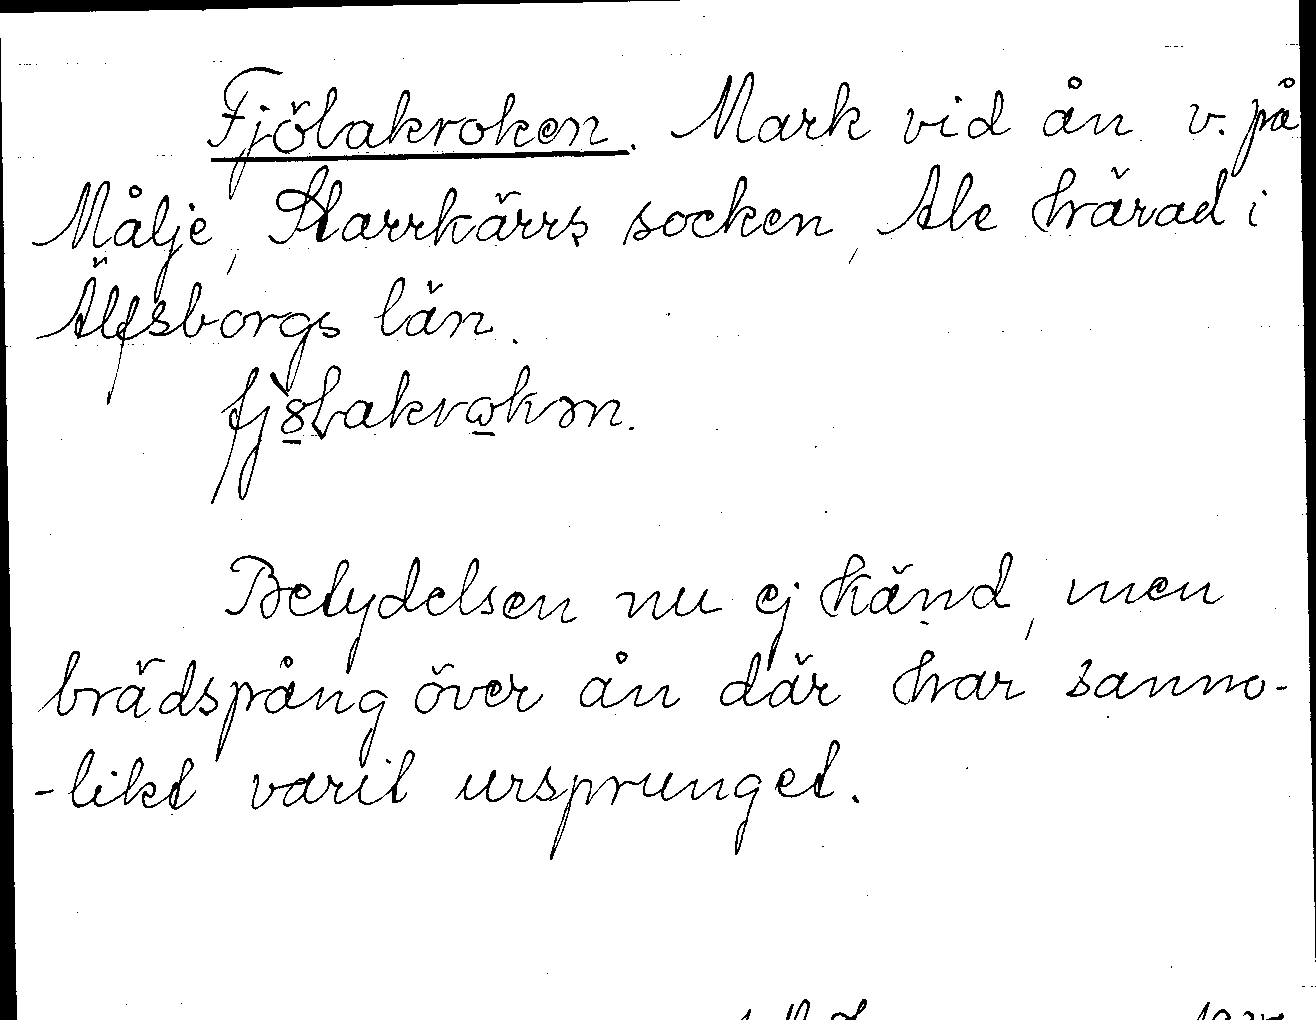 Fjölakroken. Mark vid ån v. på
Målje, Starrkärrs socken, Ale härad i
Älfsborgs län.
Betydelsen nu ej känd, men
brädspång över ån där har sanno-
-likt varit ursprunget.